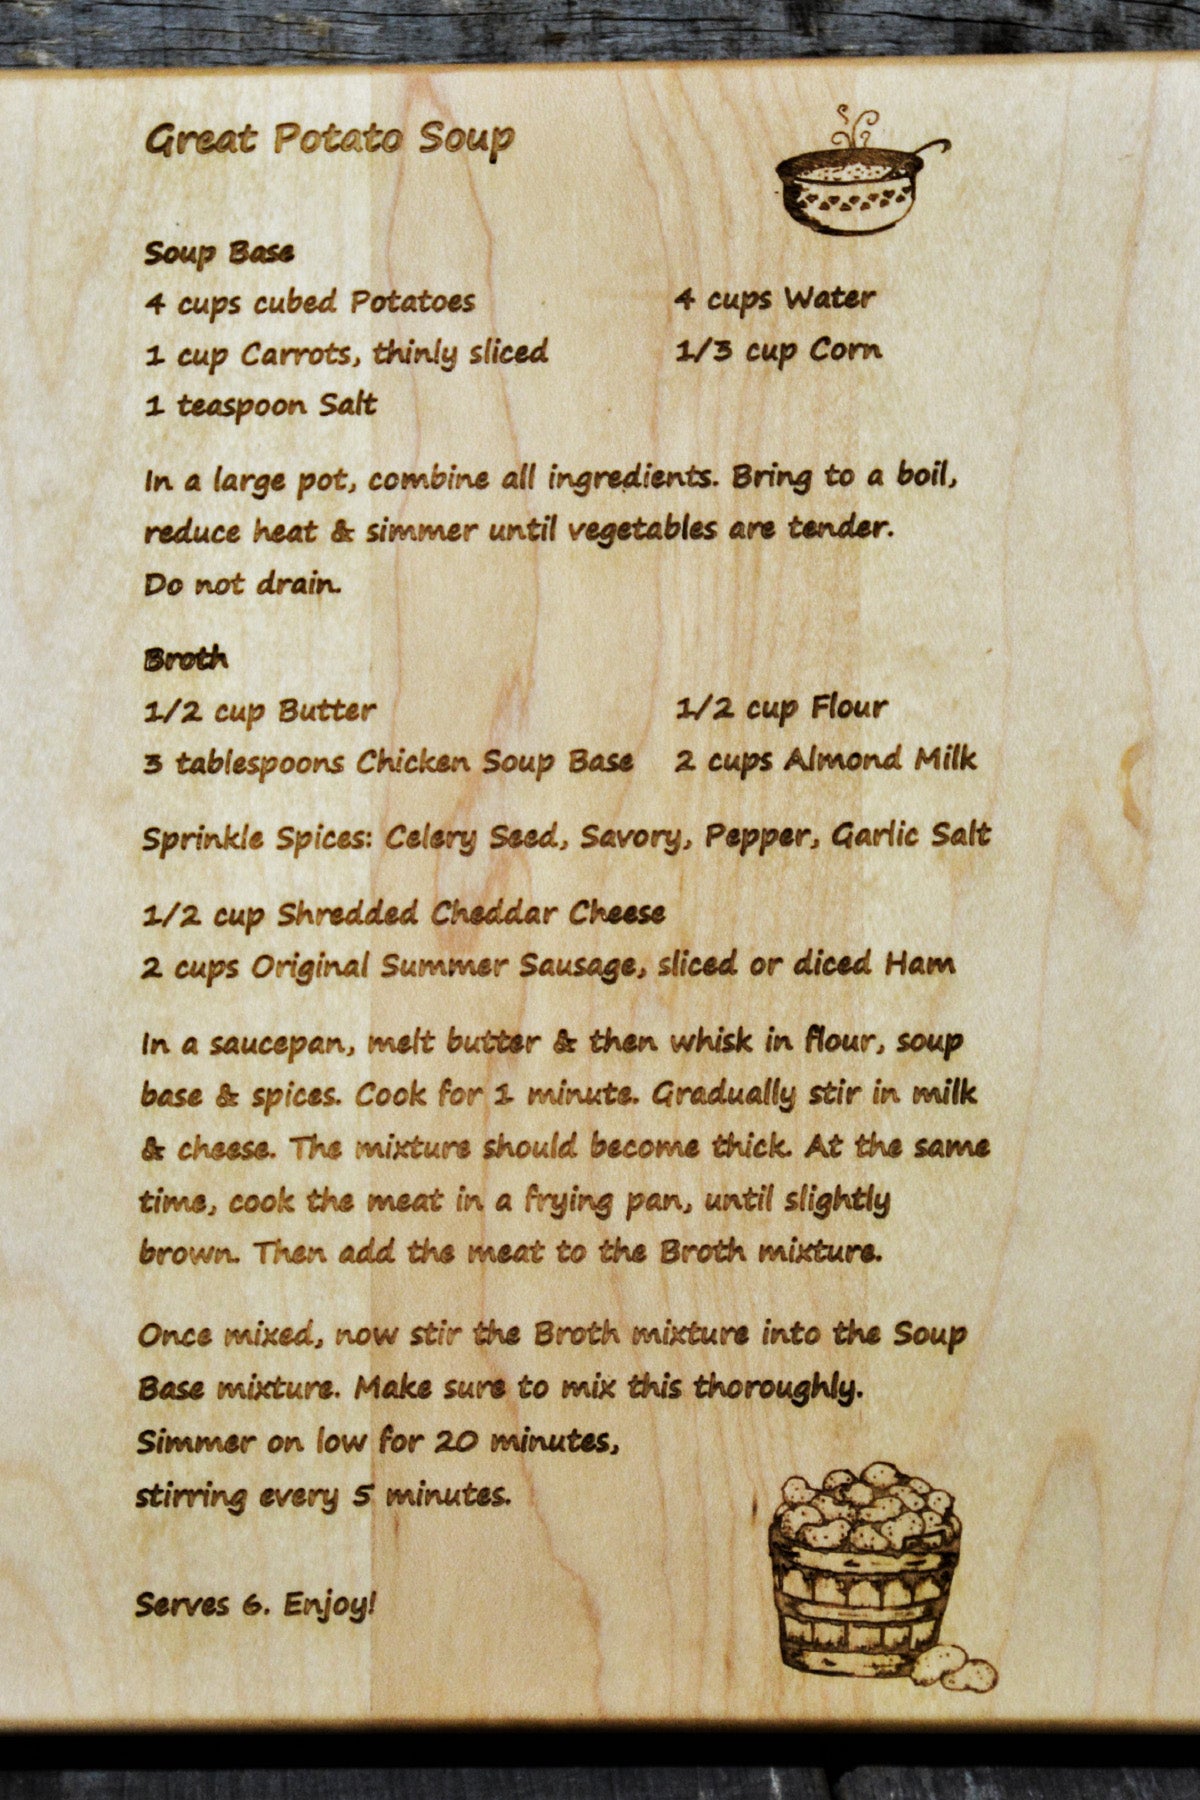 Great Potato Soup
Soup Base
4 cups cubed Potatoes 4 cups Water
1 cup Carrots, thinly sliced 1/3 cup Corn
1 teaspoon Salt
In a large pot, combine all ingredients. Bring to a boil,
reduce heat & simmer until vegetables are tender.
Do not drain.
Broth
1/2 cup Butter 1/2 cup Flour
3 tablespoons Chicken Soup Base 2 cups Almond Milk
Sprinkle Spices: Celery Seed, Savory, Pepper, Garlic Salt
1/2 cup Shredded Cheddar Cheese
2 cups Original Summer Sausage, sliced or diced Ham
In a saucepan, melt butter & then whisk in flour, soup
base & spices. Cook for 1 minute. Gradually stir in milk
& cheese. The mixture should become thick. At the same
time, cook the meat in a frying pan, until slightly
brown. Then add the meat to the Broth mixture.
Once mixed, now stir the Broth mixture into the Soup
Base mixture. Make sure to mix this thoroughly.
Simmer on low for 20 minutes,
stirring every 5 minutes.
Serves 6. Enjoy!